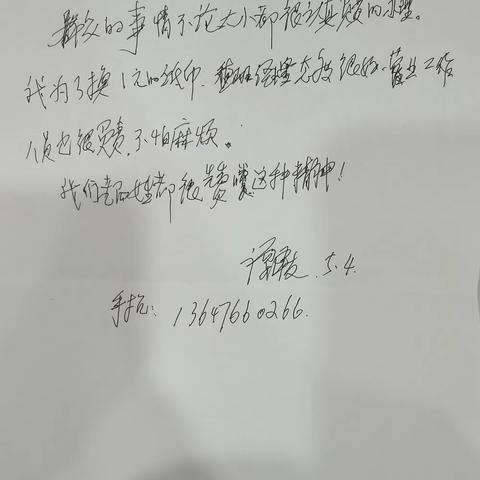 群众的事情不论大小都很认真负责的办理。
我为了换1元的纸币、值班经理态度很好、营业工作
人员也很负责,不怕麻烦。
我们老百姓都很赞赏这种精神!
5.4.
手机:13647660266.